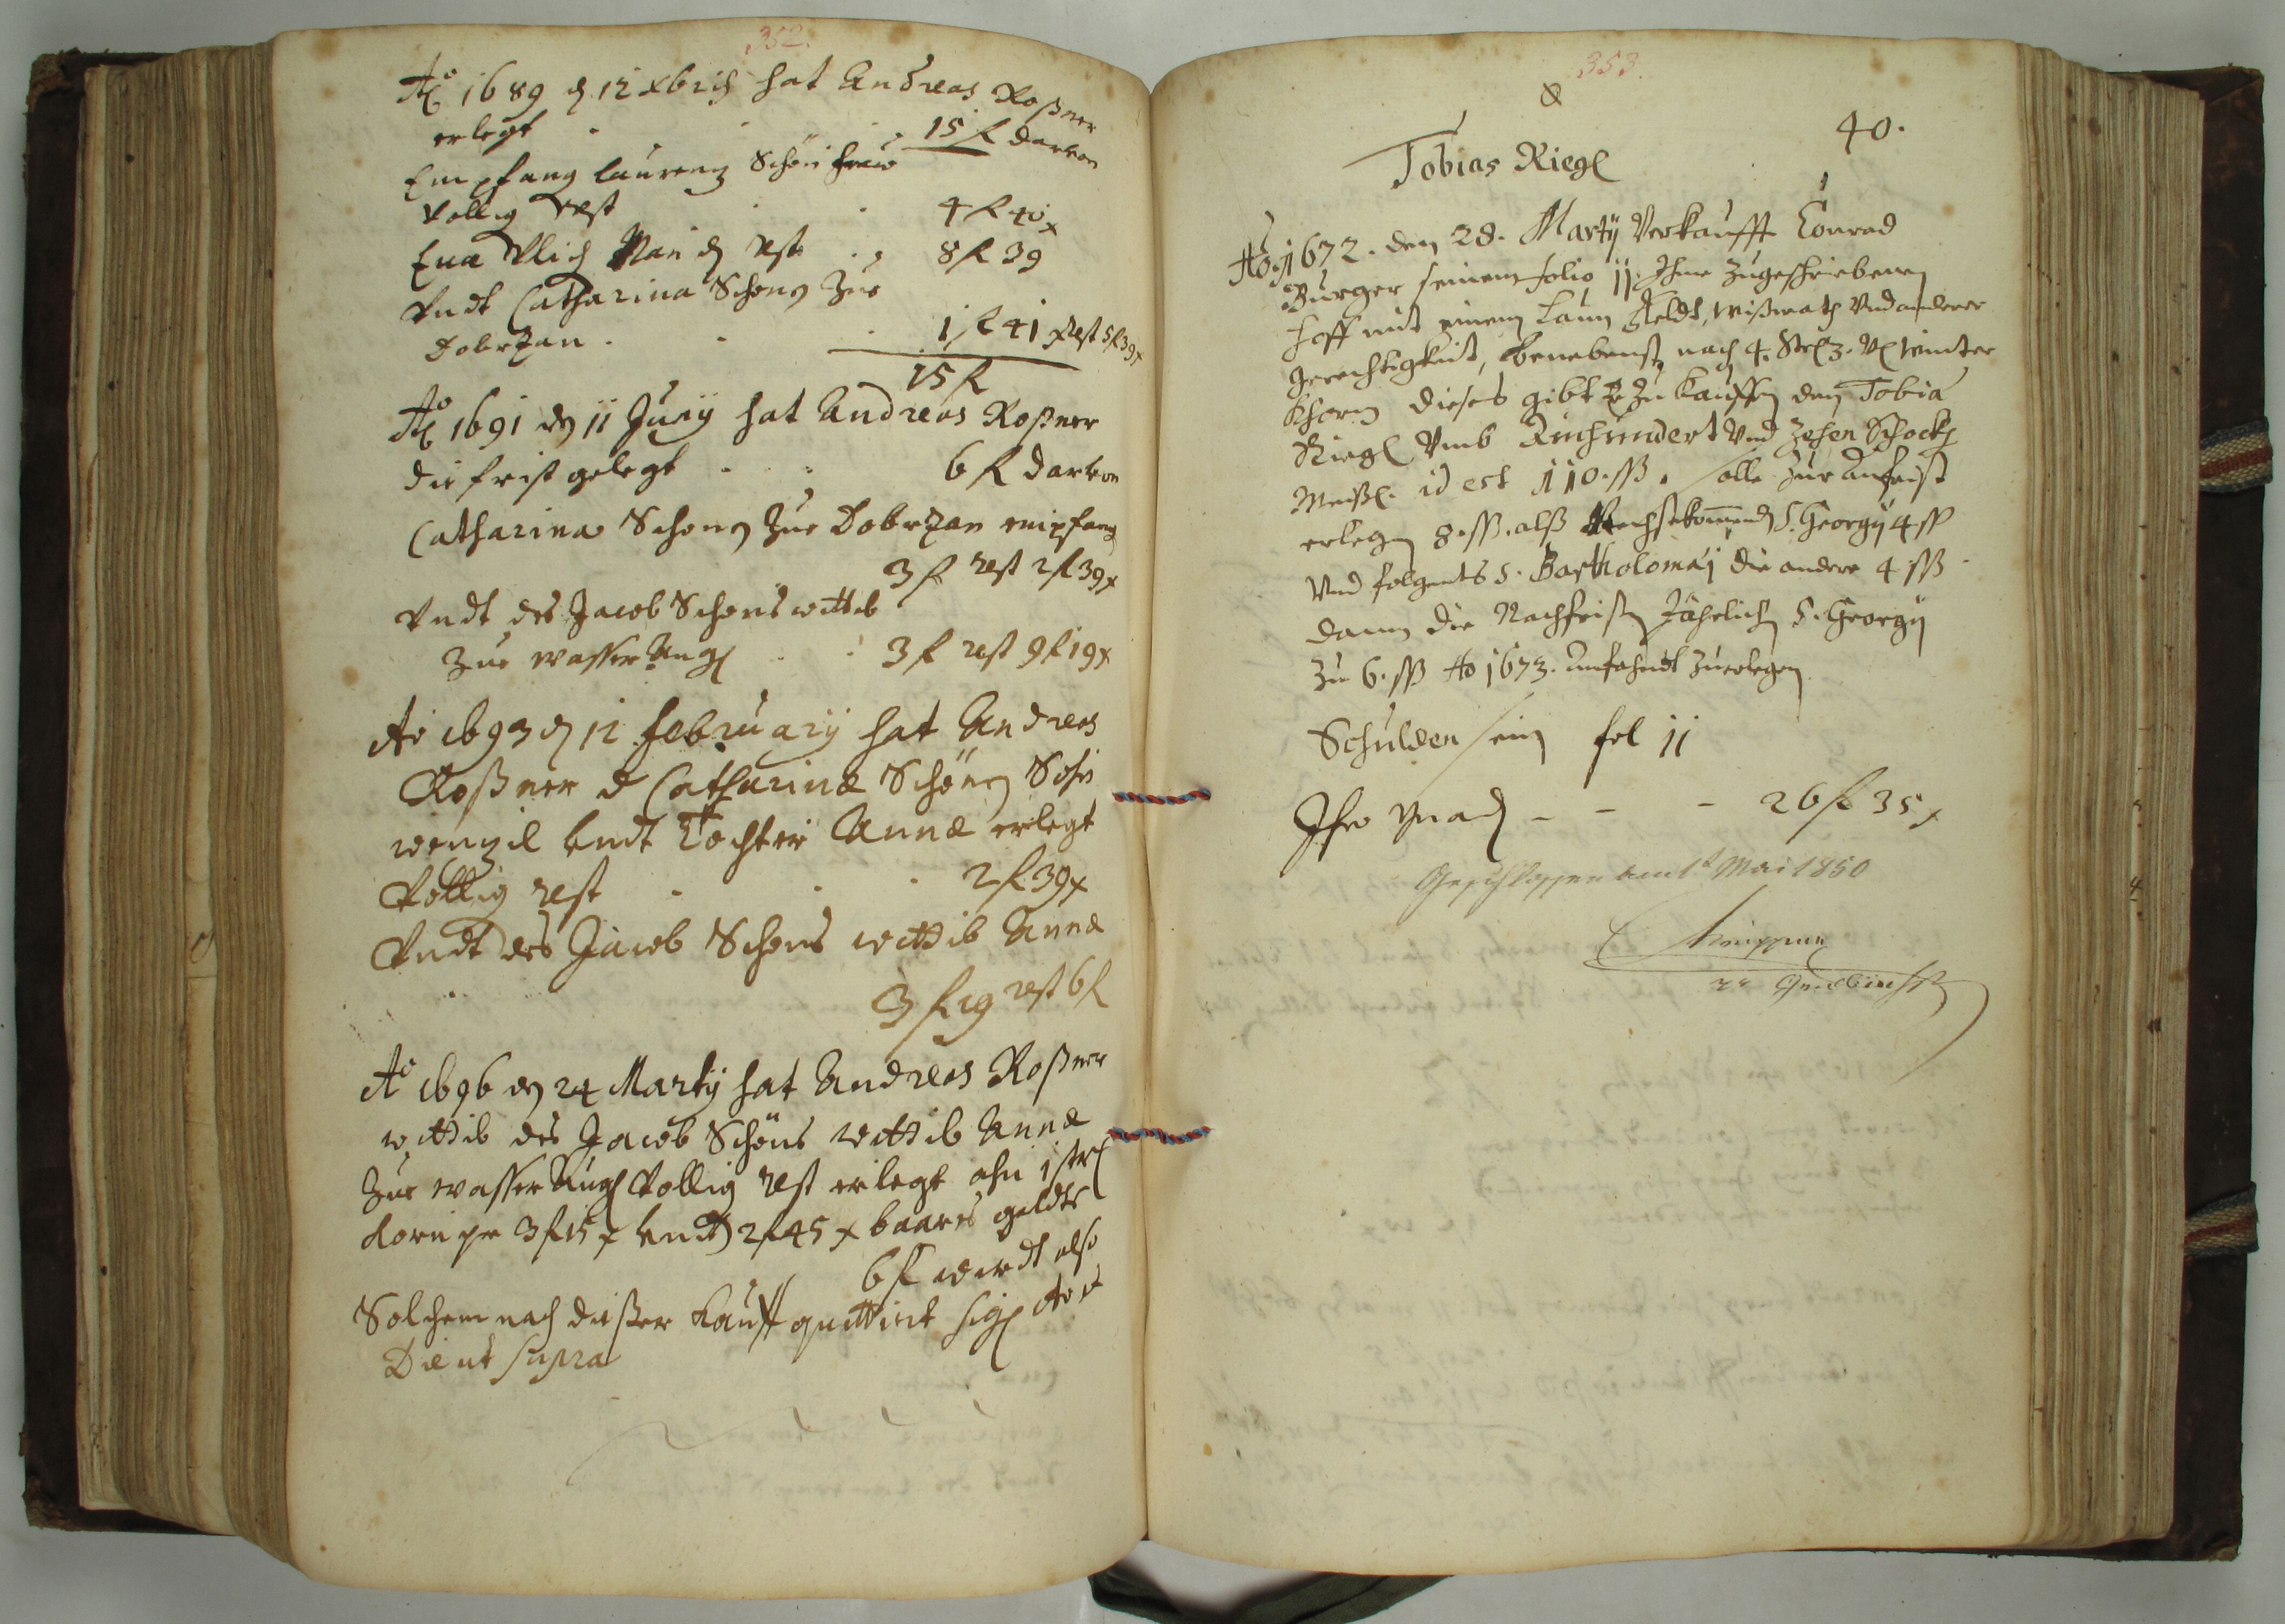 352.
Ao 1689 d 12 xbris hat Andreas Roßner
erlegt . . . 15 f darvon
Empfang Laurenz Schön
völlig rest . . 4 f 40 x
Eva rest . . 8 f 39
Vndt Catharina Schonin Zue
Dobrzan . . . 1 f 41 x rest 5 f 39 x
15 f
Ao 1691 den 11 Junij hat Andreas Roßner
die frist gelegt . . . 6 f darvon
Catharina Schonin Zue Dobrzan empfang
3 f rest 2 f 39 x
Vndt des Jacob Schons wittib
Zue wasser Augl . . 3 f rest 9 f 19 x
Ao 1693 d 12 February hat Andreas
Roßner d Catharinæ Schönin Sohn
wenzil vndt Tochter Annæ erlegt
völlig rest . . . 2 f 39 x
Vndt des Jacob Schons wittib Annæ
3 f 19 rest 6 f
Ao 1696 den 24 Martij hat Andreas Roßner
wittib des Jacob Schöns wittib Annæ
Zue wasser Augl völlig rest erlegt ahn 1 str
Korn pr 3 f 15 x vndt 2 f 45 x baares geldts
6 f wirdt also
Solchem nach dießer Kauff quittirt sigl Ao et
Die ut supra
353.
40.
Tobias Riegl
Ao. 1672. den 28. Martij Verkaufft Conrad
Burger seinen folio 11 Ihme Zugeschriebenen
Hoff mit einem Feldt, wißmath Vnd anderer
gerechtigkeit, benebenst noch 4. Winter
Khorn dieses gibt Er Zu Kauffen dem Tobia
Riegl Vmb Einhundert Vnd Zehen Schockh
Meißl. id est 110. ß. solle Zur Anfrist
erlegen 8. ß. alß Nechstkommend S. Georgij 4 ß
Vnd folgents S. Bartholomæj die andere 4 ß
dann die Nachfristen Jährlich S. Georgij
Zu 6. ß Ao 1673. Anfahendt Zuerlegen
Schulden sein fol 11
Ihro Gnad - - - 26 f 35 x
Geschlossen am 1t Mai 1850